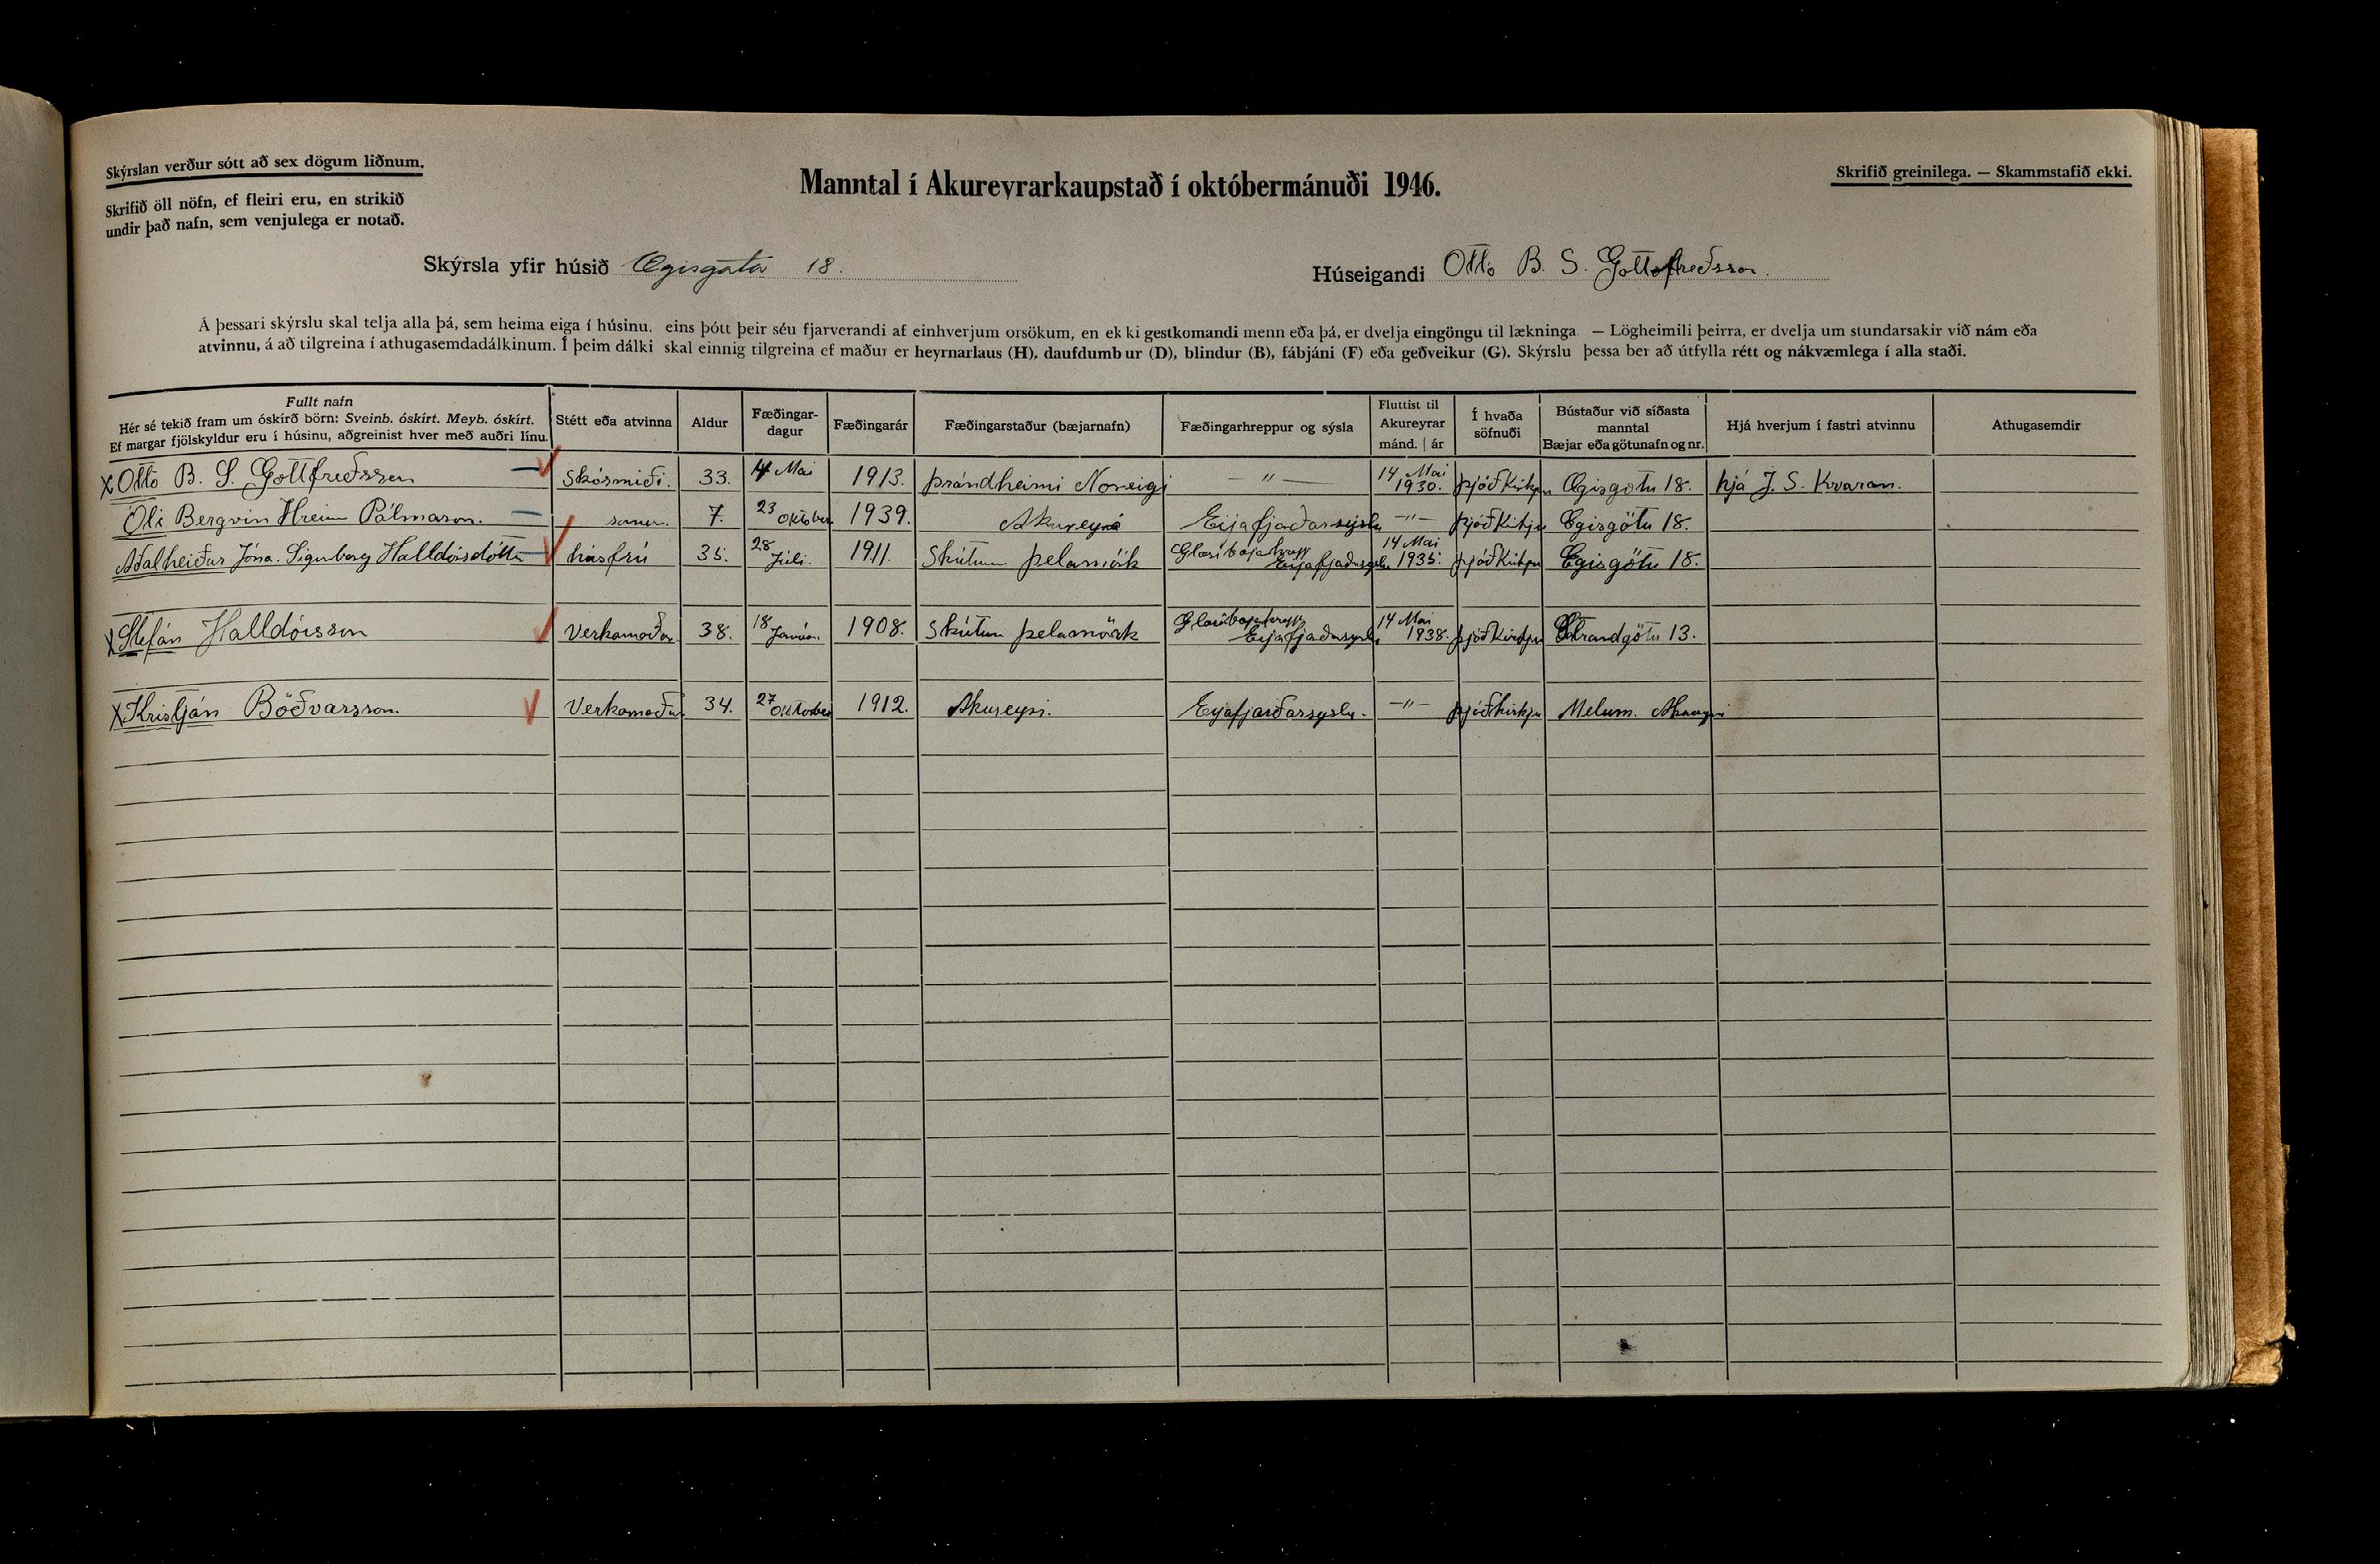 Skýrslan verður sótt að sex dögum liðnum.
Skrifið öll nöfn, ef fleiri eru, en strikið
undir það nafn, sem venjulega er notað.
Manntal í Akureyrarkaupstað í októbermánuði 1946.
Skrifið greinilega. — Skammstafið ekki.
Skýrsla yfir húsið Ægisgata 18.
Húseigandi Otto B. S. Gottfreðsson.
Á þessari skýrslu skal telja alla þá, sem heima eiga í húsinu, eins þótt þeir séu fjarverandi af einhverjum orsökum, en ekki gestkomandi menn eða þá, er dvelja eingöngu til lækninga. — Lögheimili þeirra, er dvelja um stundarsakir við nám eða
atvinnu, á að tilgreina í athugasemdadálkinum. Í þeim dálki skal einnig tilgreina ef maður er heyrnarlaus (H), daufdumbur (D), blindur (B), fábjáni (F) eða geðveikur (G). Skýrslu þessa ber að útfylla rétt og nákvæmlega í alla staði.
Fullt nafn
Hér sé tekið fram um óskírð börn: Sveinb. óskírt. Meyb. óskírt.
Ef margar fjölskyldur eru í húsinu, aðgreinist hver með auðri línu.
Stétt eða atvinna
Aldur
Fæðingar-
dagur
Fæðingarár
Fæðingarstaður (bæjarnafn)
Fæðingarhreppur og sýsla
Fluttist til
Akureyrar
mánd. | ár
Í hvaða
söfnuði
Bústaður við síðasta
manntal
Bæjar eða götunafn og nr.
Hjá hverjum í fastri atvinnu
Athugasemdir
x Otto B. S. Gottfreðsson — Skósmiði. 33. 14 Mai 1913. Þrándheimi Noreigi —"— 14 Mai 1930. þjóðkirkju Ægisgötu 18. hjá J. S. Kvaran.
Óli Bergvin Hreinn Pálmason. — sonur. 7. 23 október 1939. Akureyri Eyjafjarðarsýslu —"— þjóðkirkju Egisgötu 18.
Aðalheiður Jóna Sigurborg Halldórsdóttir — húsfrú 35. 28 Júlí. 1911. Skútum Þelamörk Glæsibæjarhrepp Eyjafjaðarsýslu 14 Mai 1935. þjóðkirkju Egisgötu 18.
x Stefán Halldórsson Verkamaður 38. 18 Janúar. 1908. Skútum Þelamörk Glæsibæjarhrepp Eyjafjaðarsýslu 14 Mai 1938. þjóðkirkju Strandgötu 13.
x Kristján Böðvarsson. Verkamaður 34. 27 október 1912. Akureyri. Eyjafjarðarsýslu. —"— þjóðkirkju Melum. Akureyri